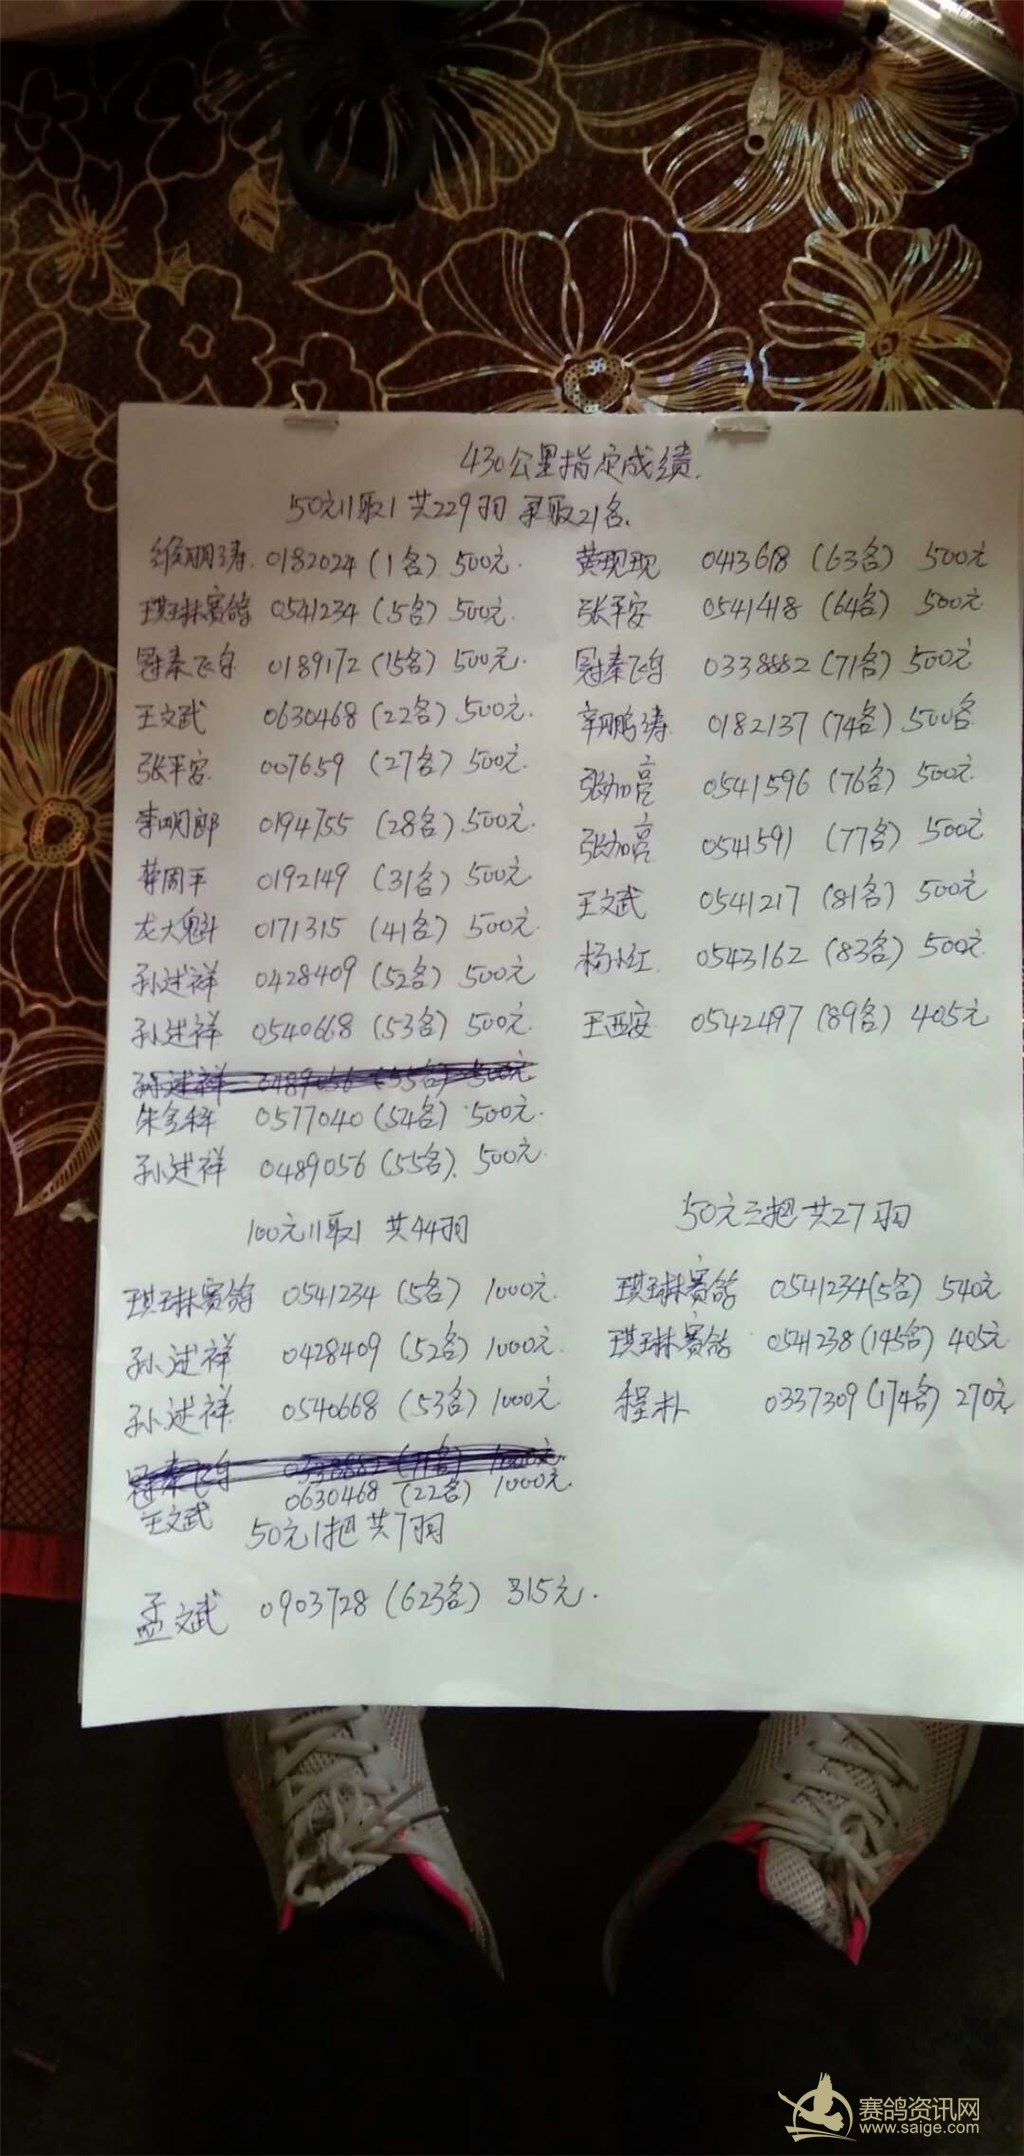 430公里指定成绩.
50元11取1 共229羽 录取21名.
维鹏涛. 0182024 (1名) 500元.
琪琳赛鸽 0541234 (5名) 500元.
冠秦飞舟 0189172 (15名) 500元.
王文武 0630468 (22名) 500元.
张平安 007659 (27名) 500元.
李明郎 0194755 (28名) 500元.
周平 0192149 (31名) 500元
龙大魁 0171315 (41名) 500元
孙述祥 0428409 (52名) 500元
孙述祥 0540668 (53名) 500元
孙述祥 0489056 (55名) 500元
朱金科 0577040 (54名) 500元.
孙述祥 0489056 (55名). 500元.
黄现现 0413618 (63名) 500元
张平安 0541418 (64名) 500元
冠秦飞舟 0338882 (71名) 500元
辛鹏涛 0182137 (74名) 500名
张加亮 0541596 (76名) 500元
张加亮 0541591 (77名) 500元
王文武 0541217 (81名) 500元
杨小红 0543162 (83名) 500元
王西安 0542497 (89名) 405元
100元11取1 共44羽
琪琳赛鸽 0541234 (5名) 1000元.
孙述祥 0428409 (52名) 1000元.
孙述祥 0540668 (53名) 1000元.
冠秦飞舟 0338882 (71名) 1000元
王文武 0630468 (22名) 1000元.
50元三把 共27羽
琪琳赛鸽 0541234 (5名) 540元
琪琳赛鸽 0541238 (145名) 405元
程朴 0337309 (174名) 270元
50元1把 共7羽
孟文武 0903728 (623名) 315元.
赛鸽资讯网
www.saige.com